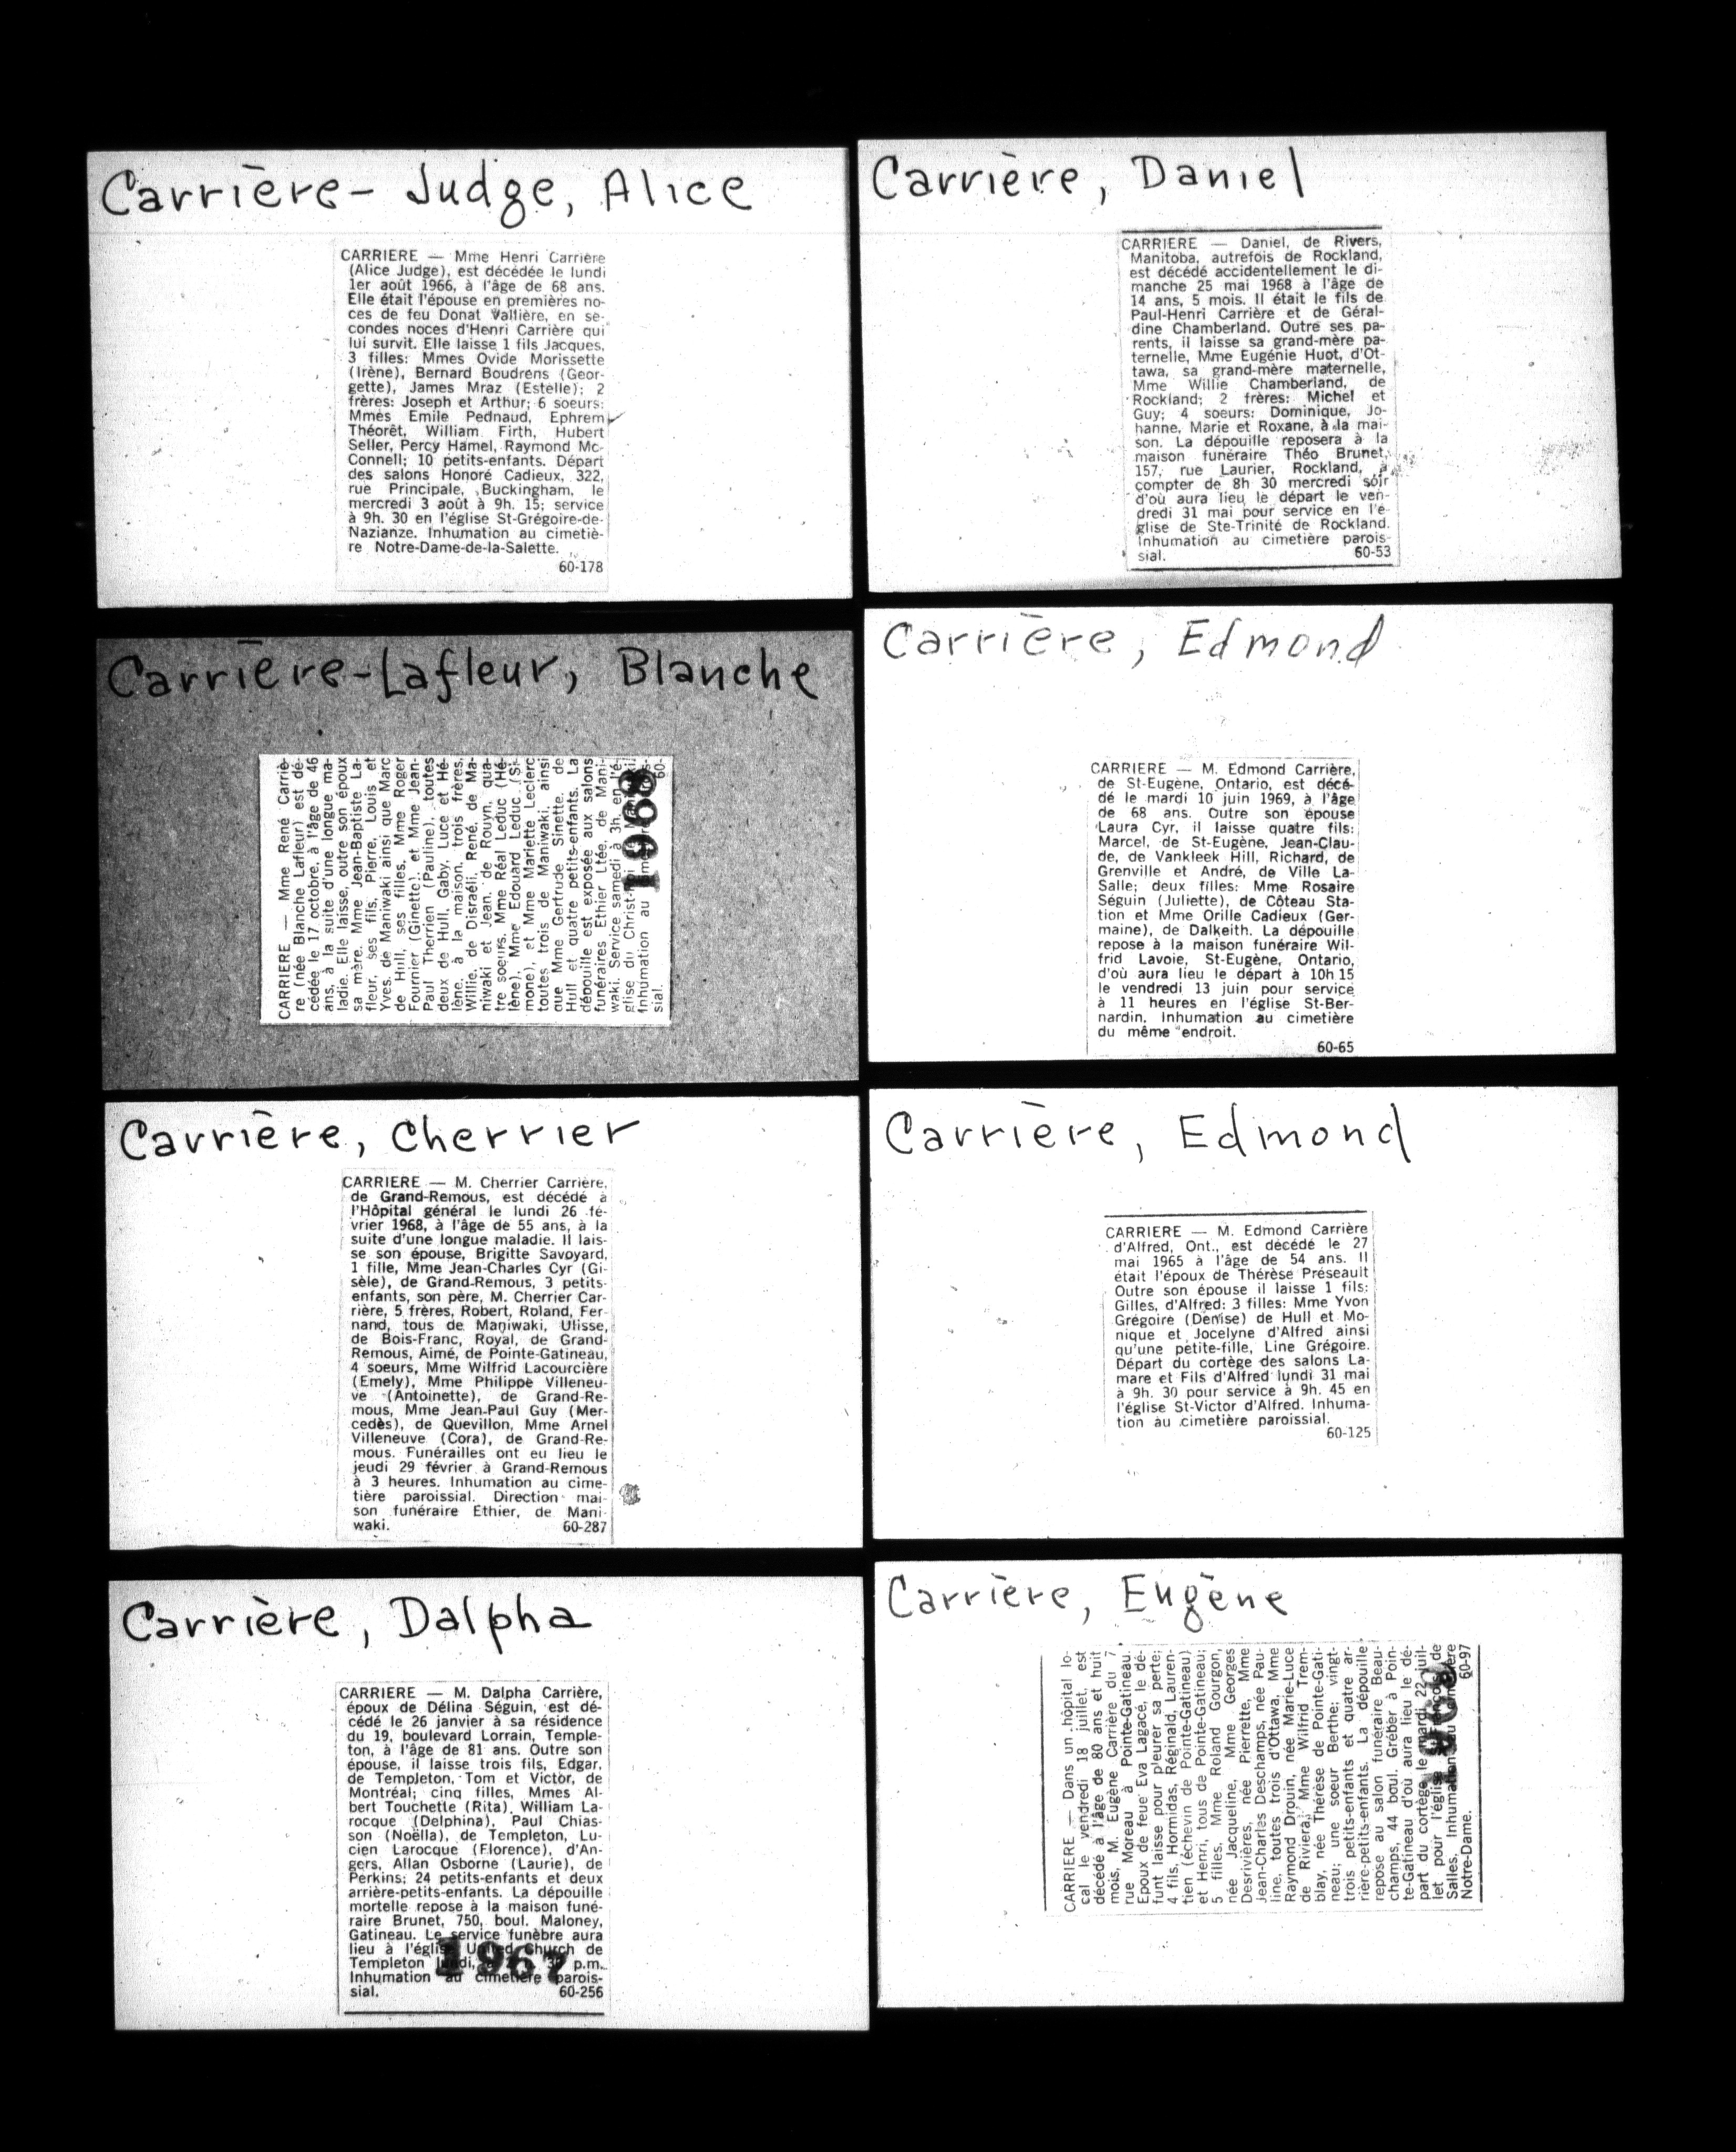 Carrière-Judge, Alice
CARRIERE — Mme Henri Carrière
(Alice Judge), est décédée le lundi
1er août 1966, à l'âge de 68 ans.
Elle était l'épouse en premières no-
ces de feu Donat Vallière, en se-
condes noces d'Henri Carrière qui
lui survit. Elle laisse 1 fils Jacques,
3 filles: Mmes Ovide Morissette
(Irène), Bernard Boudrens (Geor-
gette), James Mraz (Estelle); 2
frères: Joseph et Arthur; 6 soeurs:
Mmes Emile Pednaud, Ephrem
Théorêt, William Firth, Hubert
Seller, Percy Hamel, Raymond Mc-
Connell; 10 petits-enfants. Départ
des salons Honoré Cadieux, 322,
rue Principale, Buckingham, le
mercredi 3 août à 9h. 15; service
à 9h. 30 en l'église St-Grégoire-de-
Nazianze. Inhumation au cimetiè-
re Notre-Dame-de-la-Salette.
60-178
Carrière-Lafleur, Blanche
CARRIERE — Mme René Carriè-
re (née Blanche Lafleur) est dé-
cédée le 17 octobre, à l'âge de 46
ans, à la suite d'une longue ma-
ladie. Elle laisse, outre son époux
sa mère, Mme Jean-Baptiste La-
fleur, ses fils, Pierre, Louis et
Yves, de Maniwaki ainsi que Marc
de Hull, ses filles, Mme Roger
Fournier (Ginette), et Mme Jean-
Paul Therrien (Pauline), toutes
deux de Hull, Gaby, Luce et Hé-
lène, à la maison, trois frères,
Willie, de Disraéli, René, de Ma-
niwaki et Jean, de Rouyn, qua-
tre soeurs, Mme Réal Leduc (Hé-
lène), Mme Edouard Leduc (Si-
mone), et Mme Mariette Leclerc
toutes trois de Maniwaki, ainsi
que Mme Gertrude Sinette, de
Hull et quatre petits-enfants. La
dépouille est exposée aux salons
funéraires Ethier Ltée, de Mani-
waki. Service samedi à 3h. en l'é-
glise du Christ-
Inhumation au
sial. 60-
1968
Carrière, Cherrier
CARRIERE — M. Cherrier Carrière,
de Grand-Remous, est décédé à
l'Hôpital général le lundi 26 fé-
vrier 1968, à l'âge de 55 ans, à la
suite d'une longue maladie. Il lais-
se son épouse, Brigitte Savoyard,
1 fille, Mme Jean-Charles Cyr (Gi-
sèle), de Grand-Remous, 3 petits-
enfants, son père, M. Cherrier Car-
rière, 5 frères, Robert, Roland, Fer-
nand, tous de Maniwaki, Ulisse,
de Bois-Franc, Royal, de Grand-
Remous, Aimé, de Pointe-Gatineau,
4 soeurs, Mme Wilfrid Lacourcière
(Emely), Mme Philippe Villeneu-
ve (Antoinette), de Grand-Re-
mous, Mme Jean-Paul Guy (Mer-
cedès), de Quevillon, Mme Arnel
Villeneuve (Cora), de Grand-Re-
mous. Funérailles ont eu lieu le
jeudi 29 février à Grand-Remous
à 3 heures. Inhumation au cime-
tière paroissial. Direction mai-
son funéraire Ethier, de Mani-
waki. 60-287
Carrière, Dalpha
CARRIERE — M. Dalpha Carrière,
époux de Délina Séguin, est dé-
cédé le 26 janvier à sa résidence
du 19, boulevard Lorrain, Temple-
ton, à l'âge de 81 ans. Outre son
épouse, il laisse trois fils, Edgar,
de Templeton, Tom et Victor, de
Montréal; cinq filles, Mmes Al-
bert Touchette (Rita), William La-
rocque (Delphina), Paul Chias-
son (Noëlla), de Templeton, Lu-
cien Larocque (Florence), d'An-
gers, Allan Osborne (Laurie), de
Perkins; 24 petits-enfants et deux
arrière-petits-enfants. La dépouille
mortelle repose à la maison funé-
raire Brunet, 750, boul. Maloney,
Gatineau. Le service funèbre aura
lieu à l'église United Church de
Templeton lundi, p.m.
Inhumation au cimetière parois-
sial. 60-256
1967
Carrière, Daniel
CARRIERE — Daniel, de Rivers,
Manitoba, autrefois de Rockland,
est décédé accidentellement le di-
manche 25 mai 1968 à l'âge de
14 ans, 5 mois. Il était le fils de
Paul-Henri Carrière et de Géral-
dine Chamberland. Outre ses pa-
rents, il laisse sa grand-mère pa-
ternelle, Mme Eugénie Huot, d'Ot-
tawa, sa grand-mère maternelle,
Mme Willie Chamberland, de
Rockland; 2 frères: Michel et
Guy; 4 soeurs: Dominique, Jo-
hanne, Marie et Roxane, à la mai-
son. La dépouille reposera à la
maison funéraire Théo Brunet,
157, rue Laurier, Rockland, à
compter de 8h 30 mercredi soir
d'où aura lieu le départ le ven-
dredi 31 mai pour service en l'é-
glise de Ste-Trinité de Rockland.
Inhumation au cimetière parois-
sial. 60-53
Carrière, Edmond
CARRIERE — M. Edmond Carrière,
de St-Eugène, Ontario, est décé-
dé le mardi 10 juin 1969, à l'âge
de 68 ans. Outre son épouse
Laura Cyr, il laisse quatre fils:
Marcel, de St-Eugène, Jean-Clau-
de, de Vankleek Hill, Richard, de
Grenville et André, de Ville La-
Salle; deux filles: Mme Rosaire
Séguin (Juliette), de Côteau Sta-
tion et Mme Orille Cadieux (Ger-
maine), de Dalkeith. La dépouille
repose à la maison funéraire Wil-
frid Lavoie, St-Eugène, Ontario,
d'où aura lieu le départ à 10h 15
le vendredi 13 juin pour service
à 11 heures en l'église St-Ber-
nardin. Inhumation au cimetière
du même endroit.
60-65
Carrière, Edmond
CARRIERE — M. Edmond Carrière
d'Alfred, Ont., est décédé le 27
mai 1965 à l'âge de 54 ans. Il
était l'époux de Thérèse Préseault
Outre son épouse il laisse 1 fils:
Gilles, d'Alfred: 3 filles: Mme Yvon
Grégoire (Denise) de Hull et Mo-
nique et Jocelyne d'Alfred ainsi
qu'une petite-fille, Line Grégoire.
Départ du cortège des salons La-
mare et Fils d'Alfred lundi 31 mai
à 9h. 30 pour service à 9h. 45 en
l'église St-Victor d'Alfred. Inhuma-
tion au cimetière paroissial.
60-125
Carrière, Eugène
CARRIERE — Dans un hôpital lo-
cal le vendredi 18 juillet, est
décédé à l'âge de 80 ans et huit
mois, M. Eugène Carrière du 7
rue Moreau à Pointe-Gatineau.
Epoux de feue Eva Lagacé, le dé-
funt laisse pour pleurer sa perte;
4 fils, Hormidas, Réginald, Lauren-
tien (échevin de Pointe-Gatineau)
et Henri, tous de Pointe-Gatineau;
5 filles, Mme Roland Gourgon,
née Jacqueline, Mme Georges
Desrivières, née Pierrette, Mme
Jean-Charles Deschamps, née Pau-
line, toutes trois d'Ottawa, Mme
Raymond Drouin, née Marie-Luce
de Riviera, Mme Wilfrid Trem-
blay, née Thérèse de Pointe-Gati-
neau; une soeur Berthe; vingt-
trois petits-enfants et quatre ar-
rière-petits-enfants. La dépouille
repose au salon funéraire Beau-
champs, 44 boul. Gréber à Poin-
te-Gatineau d'où aura lieu le dé-
part du cortège le mardi 22 juil-
let pour l'église St-François de
Salles. Inhumation au cimetière
Notre-Dame. 60-97